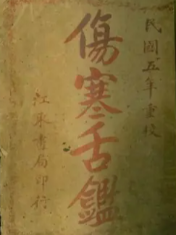 民國五年重校
傷寒舌鑑
江東書局印行